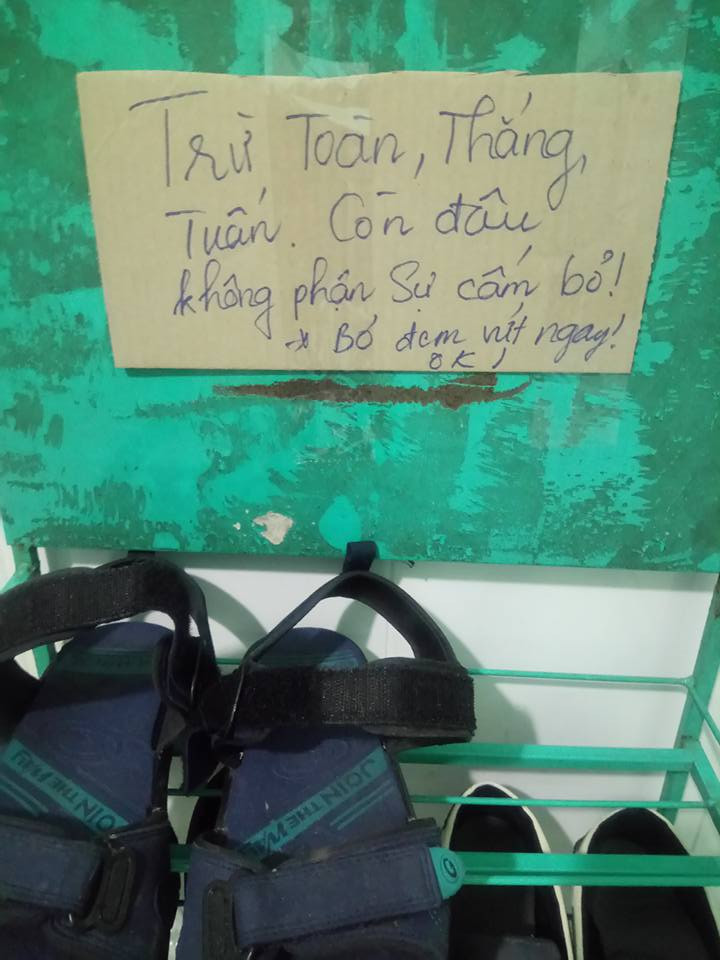 Trừ Toàn, Thắng,
Tuấn. Còn đâu
không phận Sự cấm bỏ!
* Bỏ đem vứt ngay!
OK,
JOIN THE WAY
JOIN THE WAY